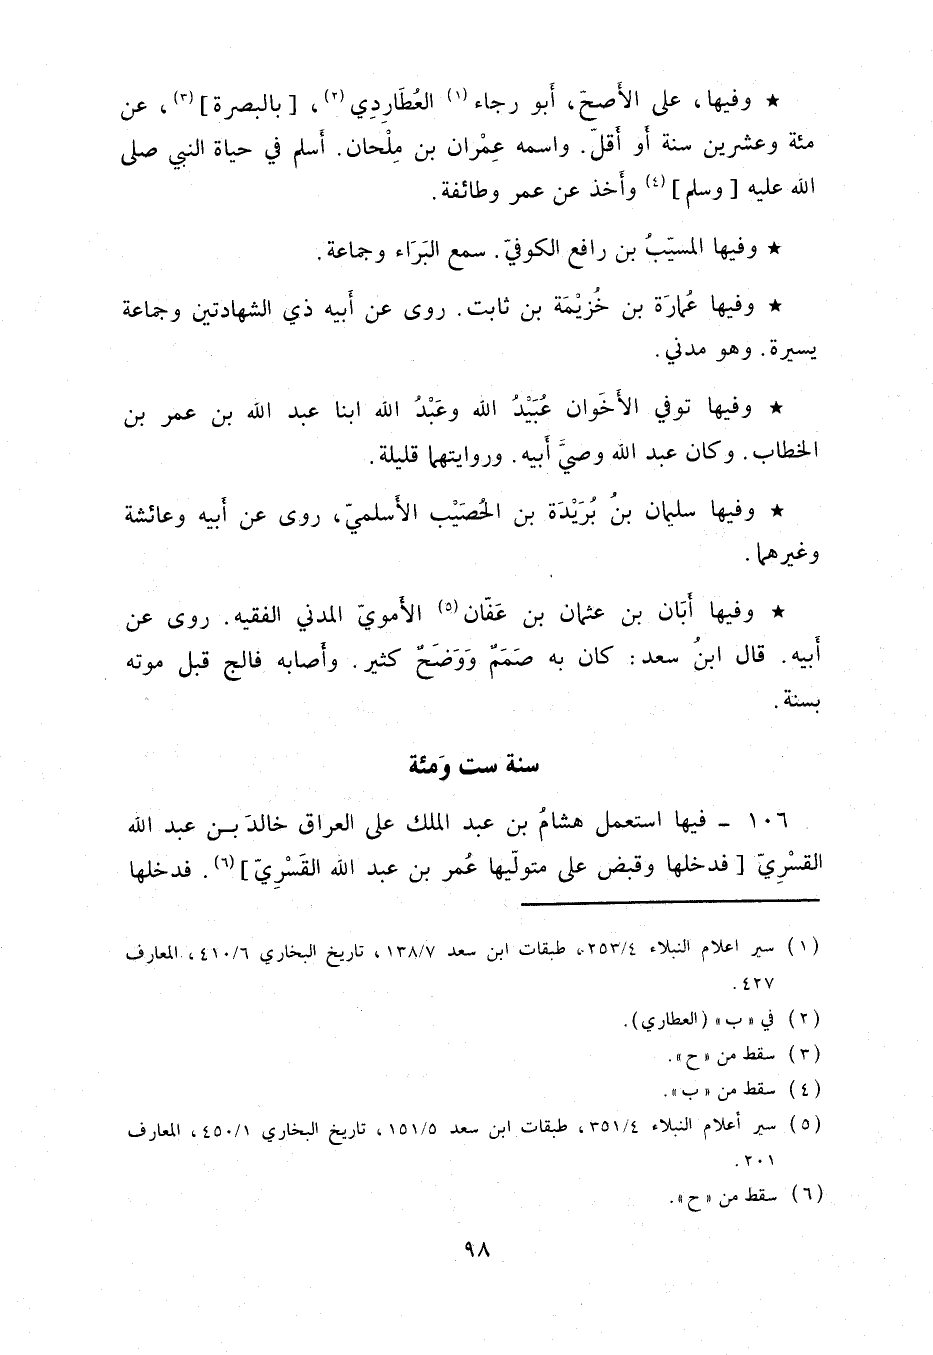 ★ وفيها، على الأَصحّ، أَبو رجاء (١) العُطَارِدِي (٢)، [ بالبصرة ] (٣)، عن
مئة وعشرين سنة أَو أَقلّ. واسمه عِمْران بن مِلْحان. أَسلم في حياة النبي صلى
الله عليه [ وسلم ] (٤) وأَخذ عن عمر وطائفة.
★ وفيها المسيّبُ بن رافع الكوفيّ. سمع البَرَاء وجماعة.
★ وفيها عُمارَة بن خُزيْمَة بن ثابت. روى عن أَبيه ذي الشهادتين وجماعة
يسيرة. وهو مدني.
★ وفيها توفي الأَخَوان عُبَيْدُ الله وعَبْدُ الله ابنا عبد الله بن عمر بن
الخطاب. وكان عبد الله وصيَّ أَبيه. وروايتهما قليلة.
★ وفيها سليمان بنُ بُرَيْدَة بن الحُصَيْب الأَسلميّ، روى عن أَبيه وعائشة
وغيرهما.
★ وفيها أَبَان بن عثمان بن عَفّان (٥) الأَمويّ المدني الفقيه. روى عن
أَبيه. قال ابنُ سعد: كان به صَمَمٌ وَوَضَحٌ كثير. وأَصابه فالج قبل موته
بسنة.
سنة ست وَمئة
١٠٦ - فيها استعمل هشامُ بن عبد الملك على العراق خالدَ بـن عبد الله
القسْرِيّ [ فدخلها وقبض على متولّيها عُمر بن عبد الله القَسْرِيّ ] (٦). فدخلها
(١) سير اعلام النبلاء ٢٥٣/٤، طبقات ابن سعد ١٣٨/٧، تاريخ البخاري ٤١٠/٦، المعارف
٤٢٧.
(٢) في « ب » (العطاري).
(٣) سقط من « ح ».
(٤) سقط من « ب ».
(٥) سير أعلام النبلاء ٣٥١/٤، طبقات ابن سعد ١٥١/٥، تاريخ البخاري ٤٥٠/١، المعارف
٢٠١.
(٦) سقط من « ح ».
٩٨